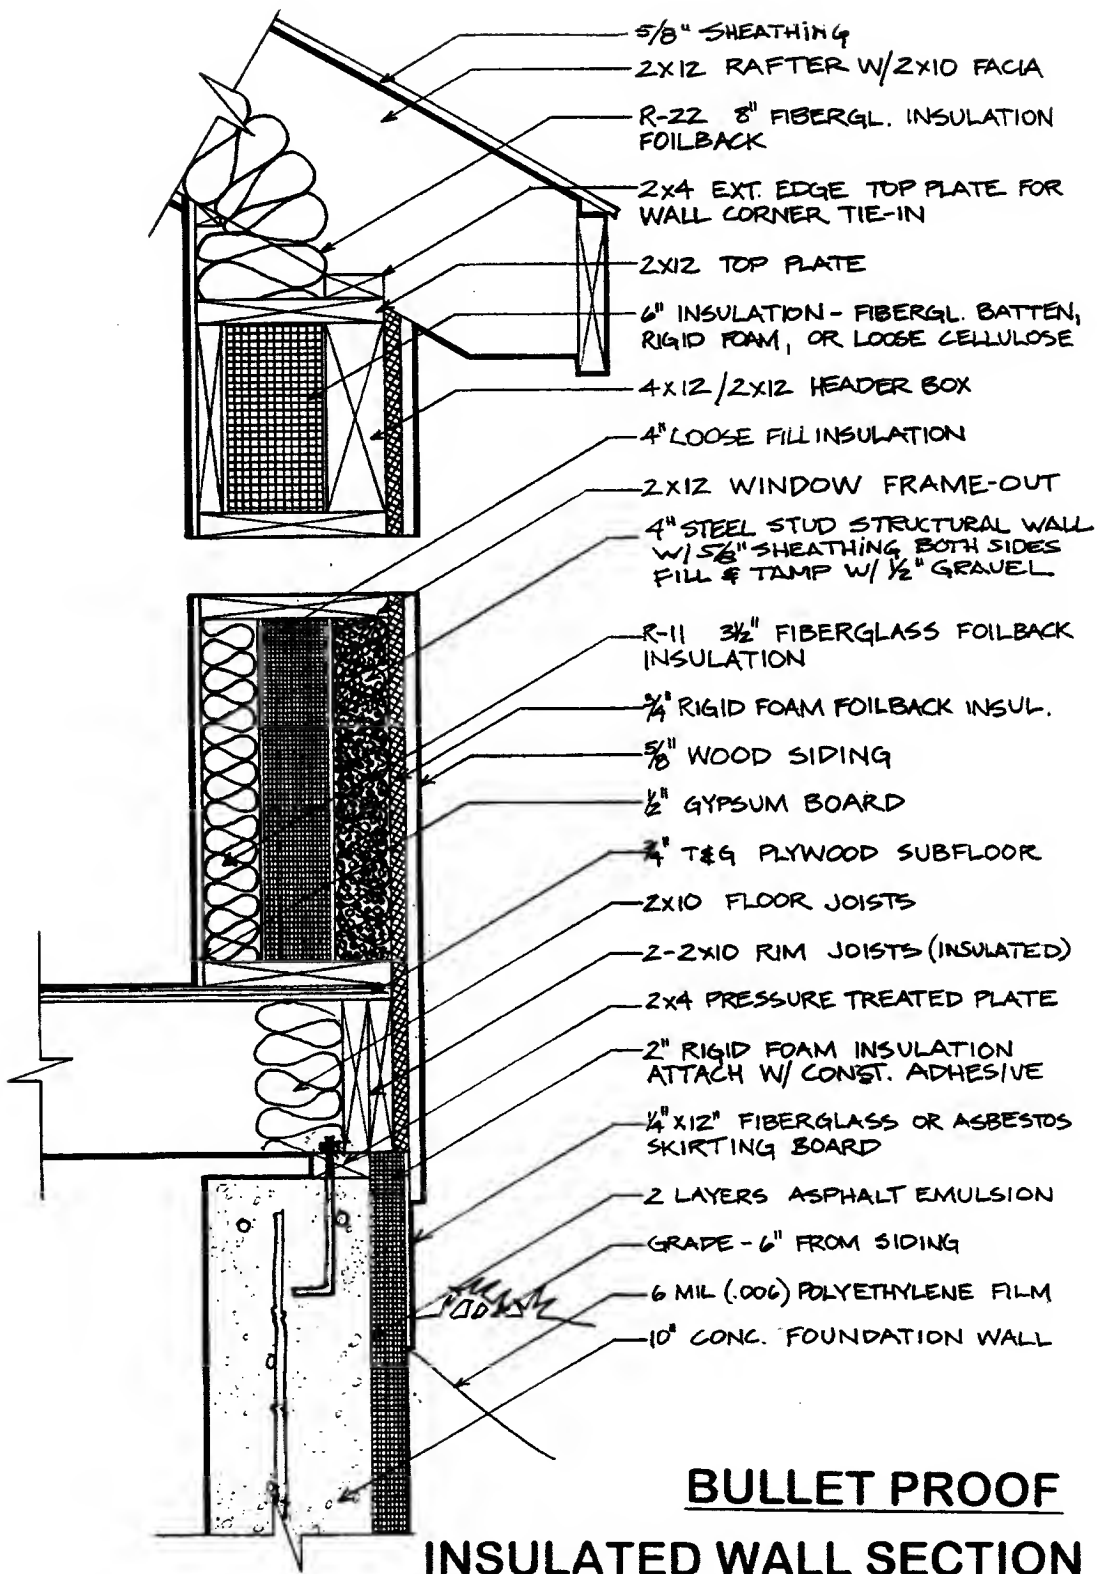 5/8" SHEATHING
2X12 RAFTER W/2X10 FACIA
R-22 8" FIBERGL. INSULATION
FOILBACK
2X4 EXT. EDGE TOP PLATE FOR
WALL CORNER TIE-IN
2X12 TOP PLATE
6" INSULATION - FIBERGL. BATTEN,
RIGID FOAM, OR LOOSE CELLULOSE
4X12/2X12 HEADER BOX
4" LOOSE FILL INSULATION
2X12 WINDOW FRAME-OUT
4" STEEL STUD STRUCTURAL WALL
W/ 5/8" SHEATHING BOTH SIDES
FILL & TAMP W/ 1/2" GRAVEL
R-11 3 1/2" FIBERGLASS FOILBACK
INSULATION
3/4" RIGID FOAM FOILBACK INSUL.
5/8" WOOD SIDING
1/2" GYPSUM BOARD
3/4" T&G PLYWOOD SUBFLOOR
2X10 FLOOR JOISTS
2-2X10 RIM JOISTS (INSULATED)
2X4 PRESSURE TREATED PLATE
2" RIGID FOAM INSULATION
ATTACH W/ CONST. ADHESIVE
1/4" X 12" FIBERGLASS OR ASBESTOS
SKIRTING BOARD
2 LAYERS ASPHALT EMULSION
GRADE - 6" FROM SIDING
6 MIL (.006) POLYETHYLENE FILM
10" CONC. FOUNDATION WALL
BULLET PROOF
INSULATED WALL SECTION